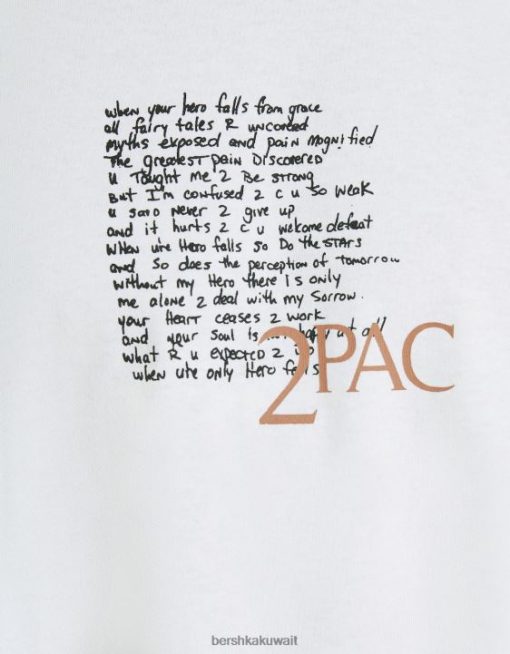 when your hero falls from grace
all fairy tales R uncovered
myths exposed and pain magnified
The greatest pain Discovered
u Taught me 2 Be strong
But I'm confused 2 c u so weak
u said Never 2 give up
and it hurts 2 c u welcome defeat
when ure Hero falls so Do the stars
and so does the perception of tomorrow
without my Hero there is only
me alone 2 deal with my Sorrow.
your Heart ceases 2 work
and your soul is not happy at all
what R u expected 2 do
when ure only Hero falls
2PAC
bershkakuwait